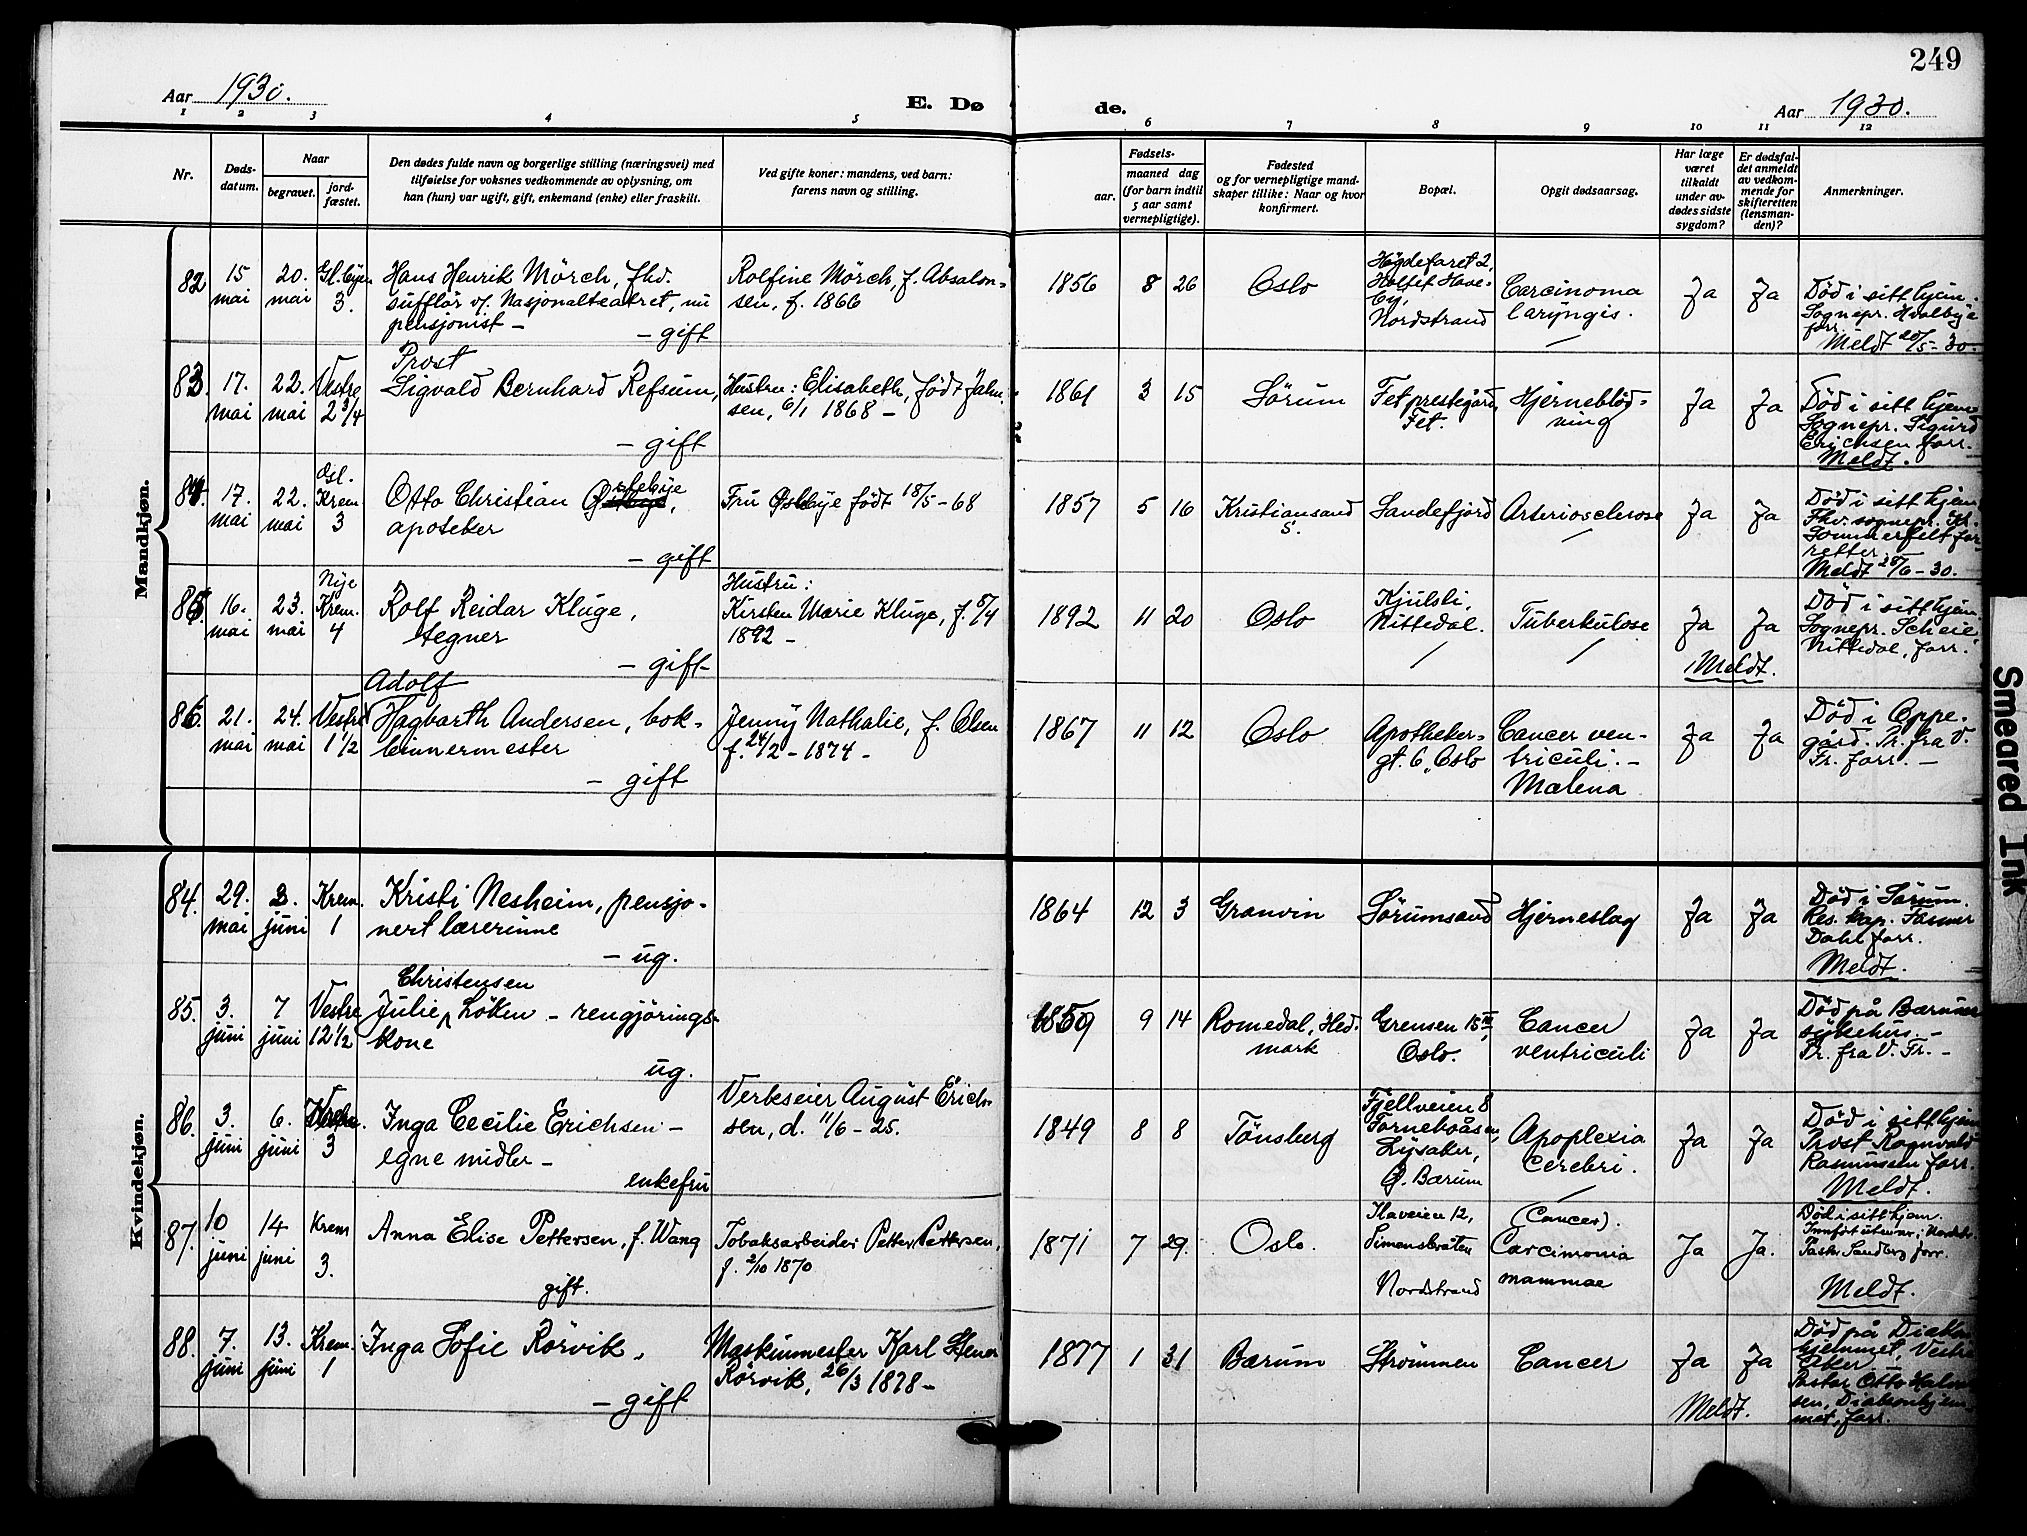 249
Aar 1930.
E. Dø
de.
Aar 1930.
1 2 3 4 5 6 7 8 9 10 11 12
Nr.
Døds-
datum.
Naar
begravet.
jord-
fæstet.
Den dødes fulde navn og borgerlige stilling (næringsvei) med
tilføielse for voksnes vedkommende av oplysning, om
han (hun) var ugift, gift, enkemand (enke) eller fraskilt.
Ved gifte koner: mandens, ved barn:
farens navn og stilling.
Fødsels-
aar.
maaned dag
(for barn indtil
5 aar samt
vernepligtige).
Fødested
og for vernepligtige mand-
skaper tillike: Naar og hvor
konfirmert.
Bopæl.
Opgit dødsaarsag.
Har læge
været
tilkaldt
under av-
dødes sidste
sygdom?
Er dødsfal-
det anmeldt
av vedkom-
mende for
skifteretten
(lensman-
den)?
Anmerkninger.
Mandkjøn.
82
15
mai
20.
mai
3.
Hans Henrik Mørch, fhv.
sufflør v/. Nasjonalteatret, nu
pensjonist –
– gift
Rolfine Mørch, f. Absalon-
sen, f. 1866
1856
8
26
Oslo
Høgdefaret 2,
Holtet Have-
by,
Nordstrand
Carcinoma
laryngis.
Ja
Ja
Død i sitt hjem.
Sognepr. Hvalbye
forr.
Meldt 20/5-30.
83.
17.
mai
22.
mai
Vestre
2 3/4
Prost
Sigvald Bernhard Refsum,
– gift
Hustru: Elisabeth, født Jahn-
sen, 6/1 1868 –
1861
3
15
Sørum
Fet prestegård,
Fet.
Hjerneblød-
ning
Ja
Ja
Død i sitt hjem
Sognepr. Sigurd
Erichsen forr.
Meldt.
84.
17.
mai
22.
mai
Osl.
Krem
3
Otto Christian Østebye,
apoteker
– gift
Fru Østebye født 18/5-68
1857
5
16
Kristiansand
S.
Sandefjord
Arteriosclerose
Ja
Ja
Død i sitt hjem
Fhv. sognepr. Kr.
Sommerfelt for-
retter.
Meldt 25/6-30.
85
16.
mai
23.
mai
Nye
Krem.
4
Rolf Reidar Kluge,
tegner
– gift –
Hustru:
Kirsten Marie Kluge, f. 5/4
1892 –
1892
11
20
Oslo
Kjulsli,
Nittedal.
Tuberkulose
Ja
Ja
Meldt.
Død i sitt hjem
Sognepr. Scheie,
Nittedal, forr.
86.
21.
mai
24.
mai
Vestre
1 1/2
Adolf
Hagbarth Andersen, bok-
binnermester
– gift
Jenny Nathalie, f. Olsen
f. 24/2 - 1874 –
1867
11
12
Oslo
Apotheker-
gt. 6, Oslo
Cancer ven-
triculi. –
Malena
Ja
Ja
Død i Oppe-
gård. Pr. fra V.
Fr. forr. –
Kvindekjøn.
84.
29.
mai
3.
juni
Krem.
1
Kristi Nesheim, pensjo-
nert lærerinne
– ug.
1864
12
3
Granvin
Sørumsand
Hjerneslag
Ja
Ja
Død i Sørum.
Res. kap. Fasmer
Dahl forr.
Meldt.
85.
3.
juni
7
juni
Vestre
12 1/2
Christensen
Julie Løken – rengjørings-
kone
ug.
1859
9
14
Romedal, Hed-
mark
Grensen 15
Oslo.
Cancer
ventriculi
Ja
Ja
Død på Bærums
sykehus. –
Pr. fra V. Fr. –
86.
3.
juni
6.
juni
Krem.
3
Inga Cecilie Erichsen –
egne midler –
enkefru
Verkseier August Erich-
sen, d. 11/6 - 25.
1849
8
8
Tønsberg
Fjellveien 8
Forneboåsen,
Lysaker,
Ø. Bærum
Apoplexia
cerebri.
Ja
Ja
Død i sitt hjem
Prost Ragnvald
Rasmussen forr.
Meldt.
87.
10
juni
14
juni
Krem
3.
Anna Elise Pettersen, f. Wang
gift.
Tobaksarbeider Petter Pettersen,
f. 2/10 1870
1871
7
29.
Oslo.
Haveien 12,
Simensbråten
Nordstrand
(Cancer).
Carcimonia
mammae
Ja
Ja.
Død i sitt hjem.
Pastor Sandberg forr.
Meldt.
88.
7.
juni
13.
juni
Krem.
1
Inga Sofie Rørvik,
– gift
Maskinmester Karl Stener
Rørvik, 26/3 1878 –
1877
1
31
Bærum
Strømmen
Cancer
Ja
Ja
Meldt.
Død på Diakon-
hjemmet, Vestre
Aker
Pastor Otto
sen, Diakonhjem-
met, forr.
Smeared Ink